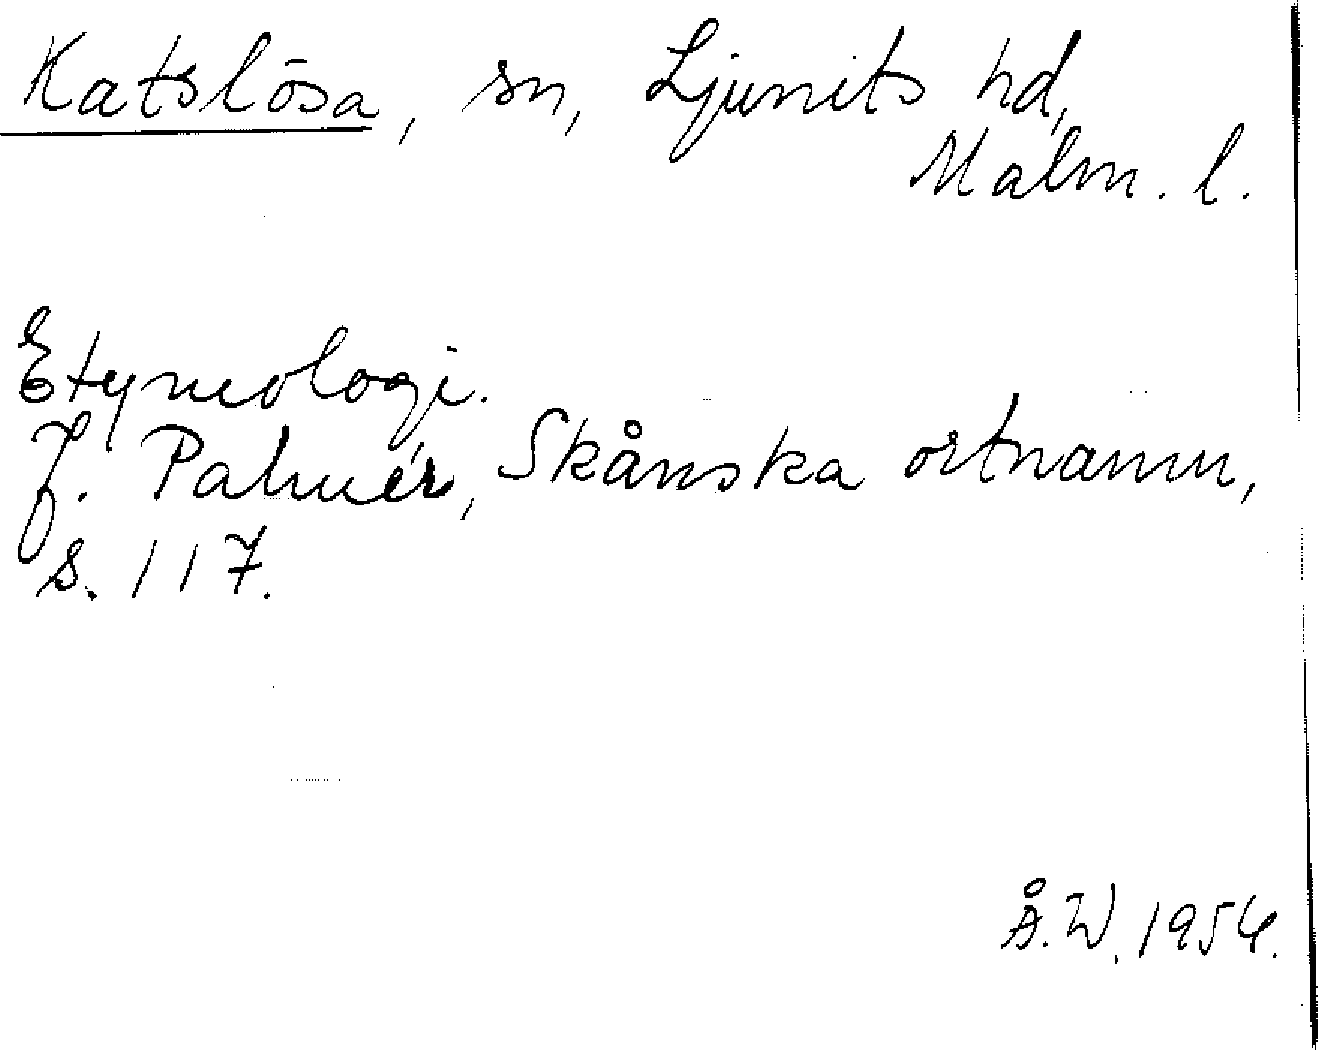 Katslösa, sn, Ljunits hd,
Malm. l.
Etymologi.
J. Palmér, Skånska ortnamn,
s. 117.
Å.W. 1954.